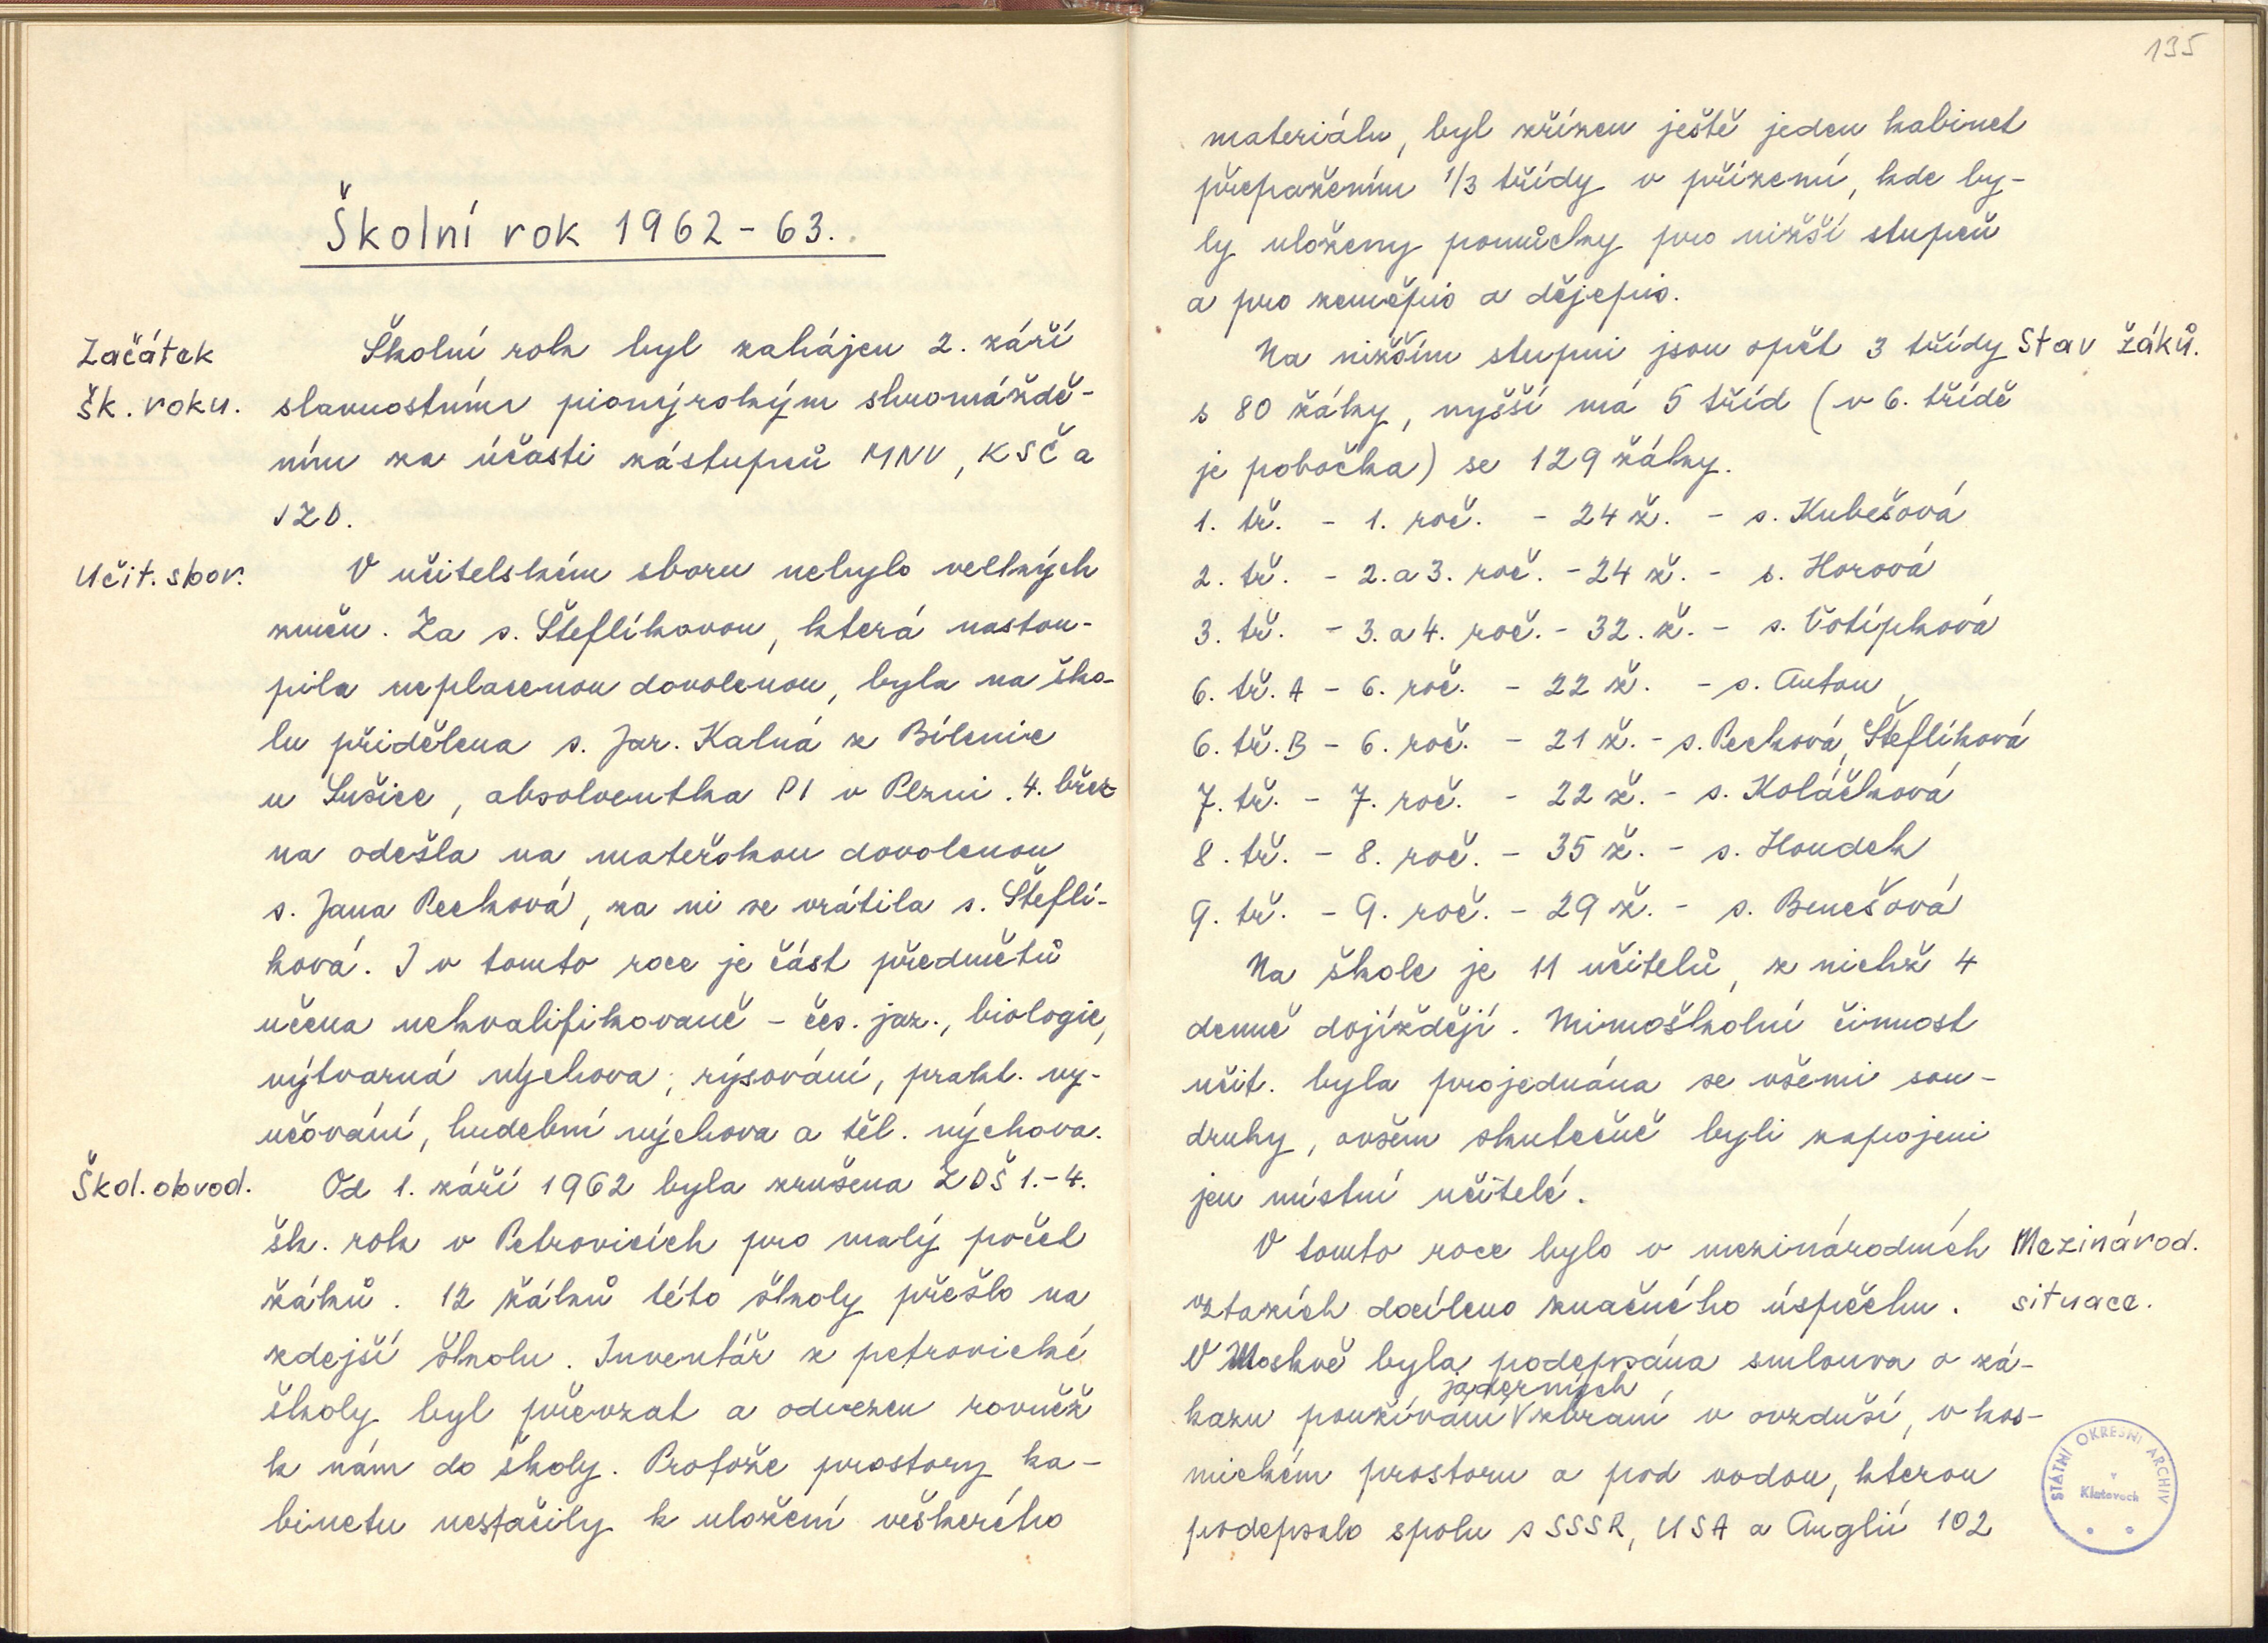 Školní rok 1962-63.
Začátek
šk. roku.
Školní rok byl zahájen 2. září
slavnostním pionýrským shromáždě-
ním za účasti zástupců MNV, KSČ a
JZD.
Učit. sbor.
V učitelském sboru nebylo velkých
změn. Za s. Šteflíkovou, která nastou-
pila neplacenou dovolenou, byla na ško-
lu přidělena s. Jar. Kalná z Bílenic
u Sušice, absolventka PI v Plzni. 4. břez
na odešla na mateřskou dovolenou
s. Jana Pecková, za ni se vrátila s. Šteflí-
ková. I v tomto roce je část předmětů
učena nekvalifikovaně - čes. jaz., biologie,
výtvarná výchova, rýsování, prakt. vy-
učování, hudební výchova a těl. výchova.
Škol. obvod.
Od 1. září 1962 byla zrušena ZDŠ 1.-4.
šk. rok v Petrovicích pro malý počet
žáků. 12 žáků této školy přešlo na
zdejší školu. Inventář z petrovické
školy byl převzat a odvezen rovněž
k nám do školy. Protože prostory ka-
binetu nestačily k uložení veškerého
135
materiálu, byl zřízen ještě jeden kabinet
přepažením 1/3 třídy v přízemí, kde by-
ly uloženy pomůcky pro nižší stupeň
a pro zeměpis a dějepis.
Na nižším stupni jsou opět 3 třídy
Stav žáků.
s 80 žáky, vyšší má 5 tříd (v 6. třídě
je pobočka) se 129 žáky.
1. tř. - 1. roč. - 24 ž. - s. Kubešová
2. tř. - 2. a 3. roč. - 24 ž. - s. Horová
3. tř. - 3. a 4. roč. - 32. ž. - s. Votípková
6. tř. A - 6. roč. - 22 ž. - s. Anton
6. tř. B - 6. roč. - 21 ž. - s. Pecková, Šteflíková
7. tř. - 7. roč. - 22 ž. - s. Koláčková
8. tř. - 8. roč. - 35 ž. - s. Houdek
9. tř. - 9. roč. - 29 ž. - s. Benešová
Na škole je 11 učitelů, z nichž 4
denně dojíždějí. Mimoškolní činnost
učit. byla projednána se všemi sou-
druhy, ovšem skutečně byli zapojeni
jen místní učitelé.
V tomto roce bylo v mezinárodních
Mezinárod.
vztazích docíleno značného úspěchu.
situace.
V Moskvě byla podepsána smlouva o zá-
jaderných
kazu používání V zbraní v ovzduší, v kos-
mickém prostoru a pod vodou, kterou
podepsalo spolu s SSSR, USA a Anglií 102
STÁTNÍ OKRESNÍ ARCHIV
v
Klatovech